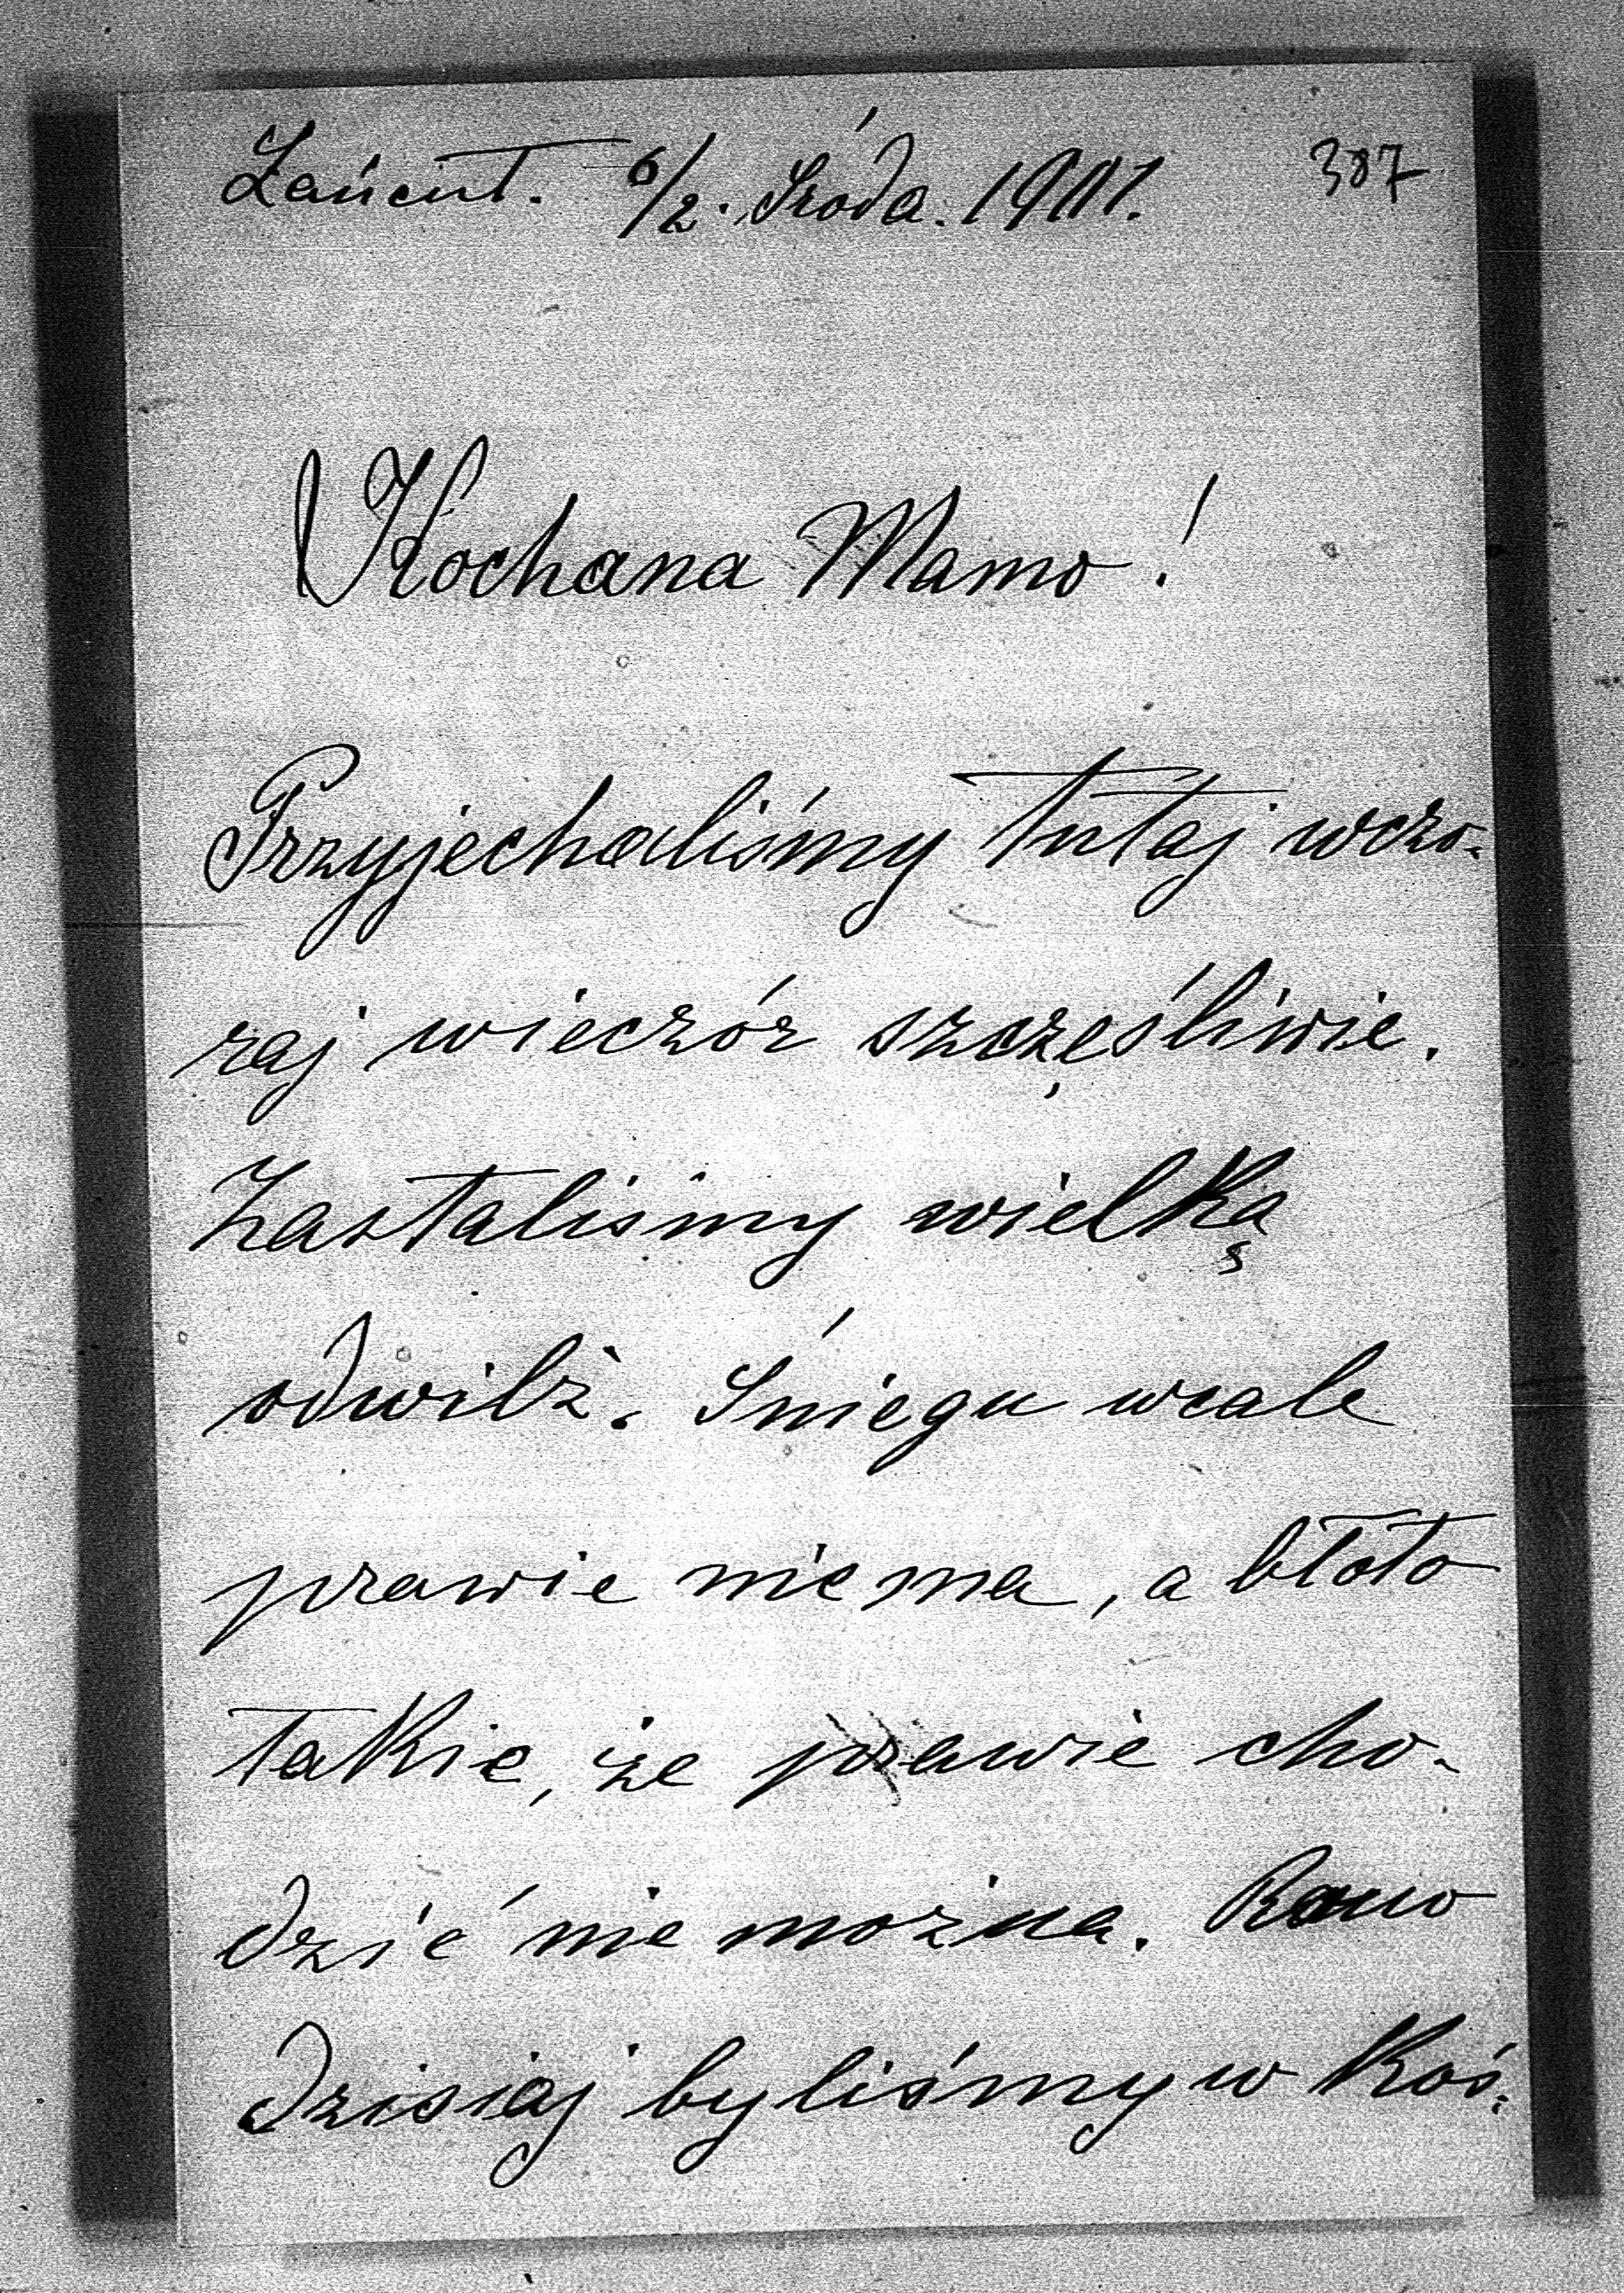 Łańcut. 6/2. Środa. 1901. 307
Kochana Mamo!
Przyjechaliśmy tutaj wczo-
raj wieczór szczęśliwie.
Zastaliśmy wielką
odwilż. Śniegu wcale
prawie niema, a błoto
takie, że prawie cho-
dzić nie można. Rano
dzisiaj byliśmy w koś-